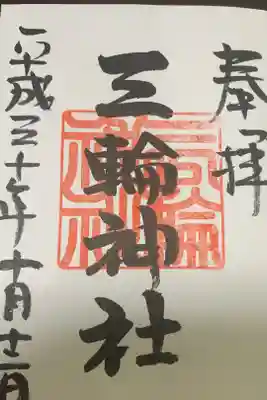 奉拝
三輪神社
三輪
神社
平成三十年十月十二日